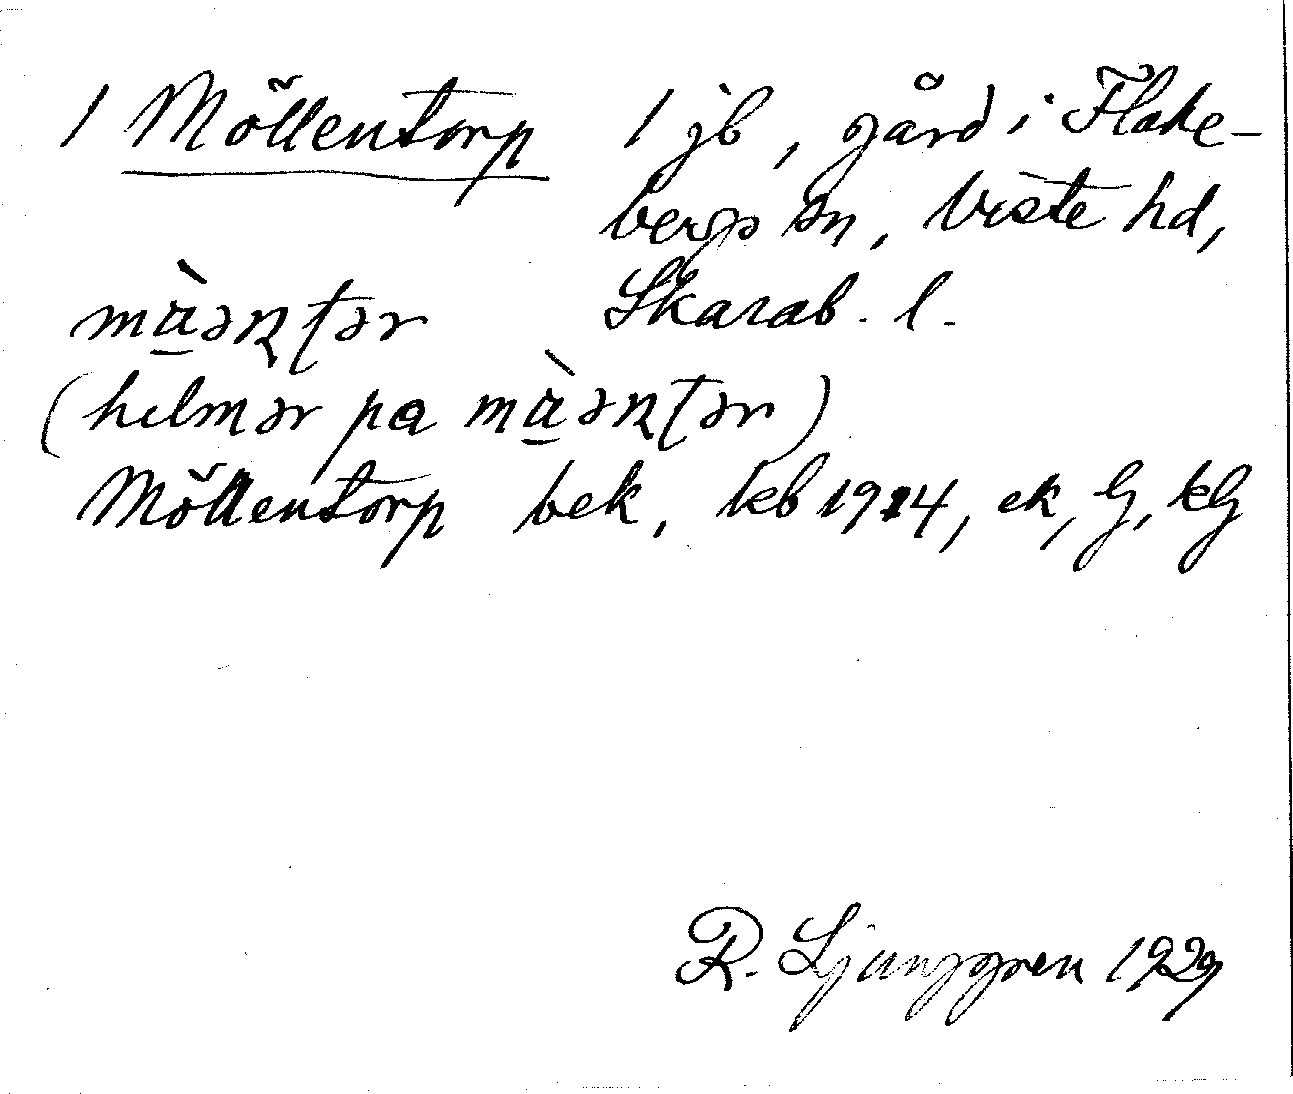 1 Möllentorp 1 jb, gård i Flake-
bergs sn, Viste hd,
Skarab. l.
mὰ̱əɳʈər
(helmər pa mὰ̱əɳʈər)
Möllentorp bek, kb 1914, ek, G, kG
R. Ljunggren 1929